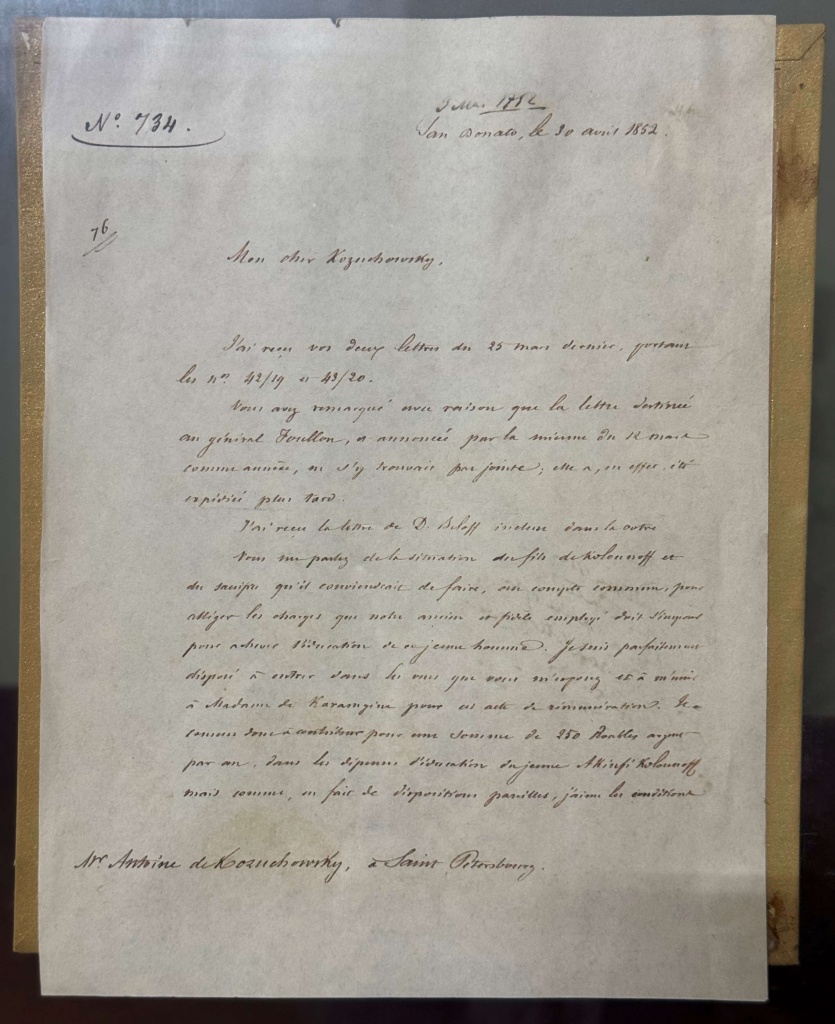 Nº 734.
1852
San Donato, le 30 avril 1852.
76
Mon cher Kozuchowsky,
J'ai reçu vos deux lettres du 25 mars dernier, portant
les nos 42/19 et 43/20.
Vous avez remarqué avec raison que la lettre destinée
au général Toullon, et annoncée par la mienne du 12 mars
comme annexe, ne s'y trouvait pas jointe; elle a, en effet, été
expédiée plus tard.
J'ai reçu la lettre de D. Beloff incluse dans la votre
Vous me parlez de la situation du fils de Kolounoff et
du sacrifice qu'il conviendrait de faire, en compte commun, pour
alléger les charges que notre ancien et fidèle employé doit s'imposer
pour achever l'éducation de ce jeune homme. Je suis parfaitement
disposé à entrer dans les vues que vous m'exposez et à m'unir
à Madame de Karamzine pour cet acte de rémunération. Je
consens donc à contribuer pour une somme de 250 Roubles argent
par an, dans les dépenses d'éducation du jeune Akinfi Kolounoff
mais comme, en fait de dispositions pareilles, j'aime les conditions
Mr Antoine de Kozuchowsky, à Saint Pétersbourg.